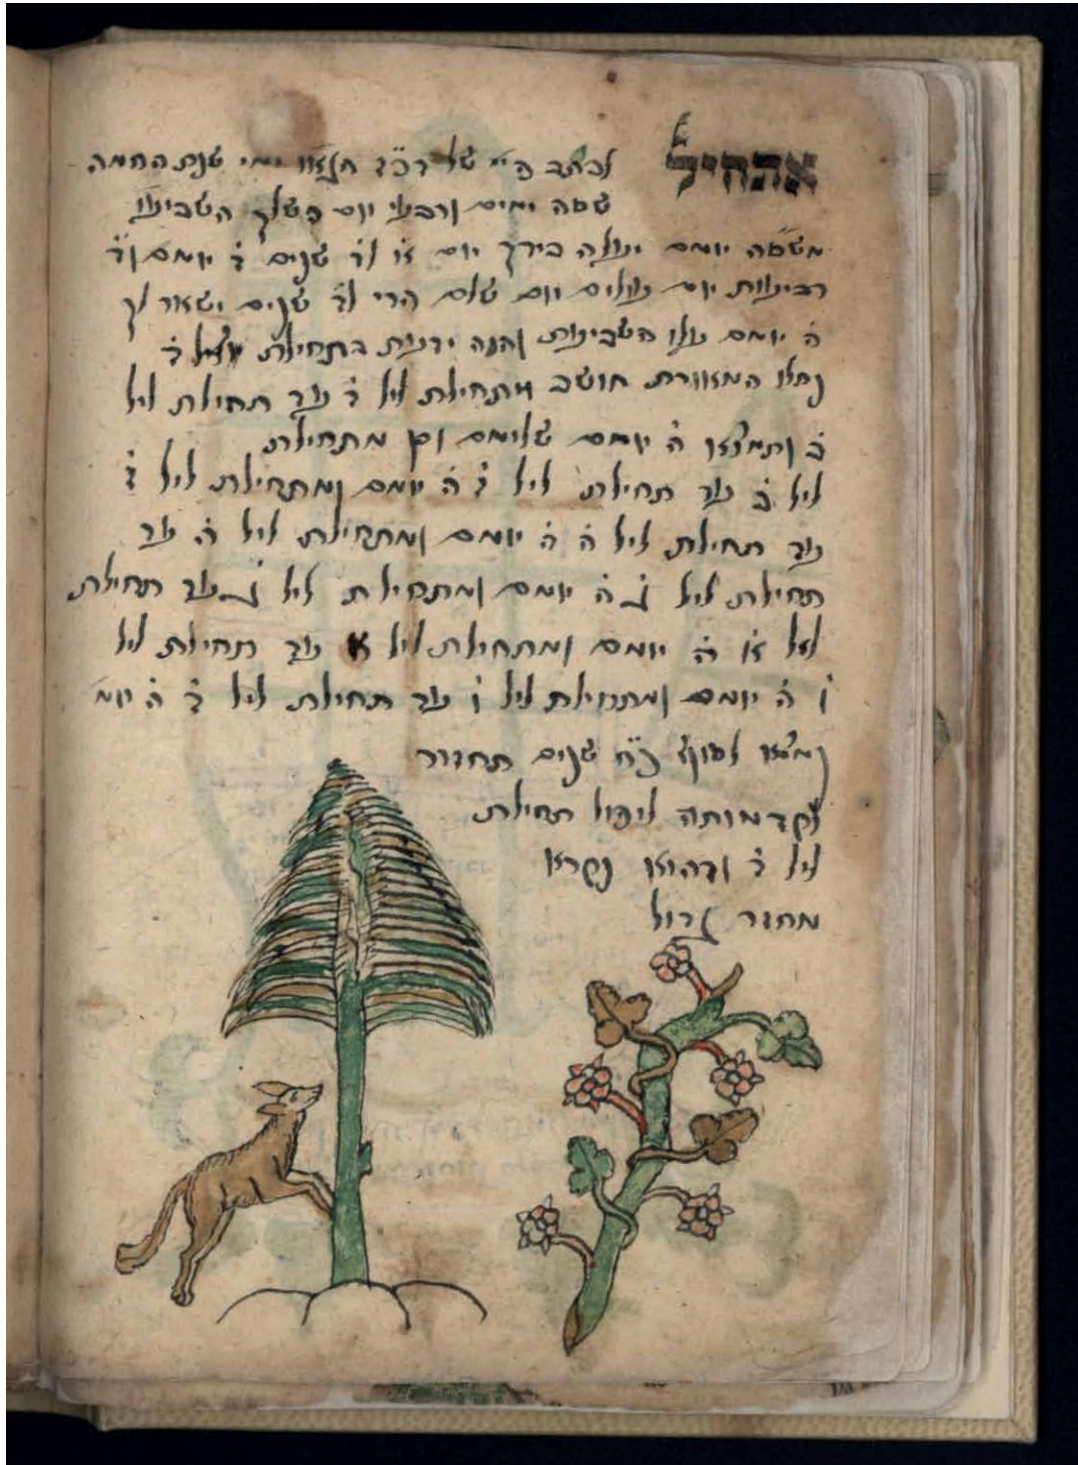 אתחיל של ימי שנת החמה
שסה ימים ורביע יום השלך
משסה יומם יעלה בידך יום א וד שנים ד יומם וד
רביעות יום עולים יום שלם הרי לד שנים ישאר לך
ה יומם עלו השביעות והנה ידעת בתחילת ליל ד
נתלו המאורת חושב מתחילת ליל ד עד תחילת ליל
ב ותמצא ה יומם שלימם וכן מתחילת
ליל ב עד תחילת ליל ז ה יומם ומתחילת ליל ז
עד תחילת ליל ה ה יומם ומתחילת ליל ה עד
תחילת ליל ג ה יומם ומתחילת ליל ג עד תחילת
ליל א ה יומם ומתחילת ליל א עד תחילת ליל
ו ה יומם ומתחילת ליל ו עד תחילת ליל ד ה יומ
נמצא לסוף כ"ח שנים תחזור
לקדמותה ליפול תחילת
ליל ד והוא נקרא
מחזור גדול